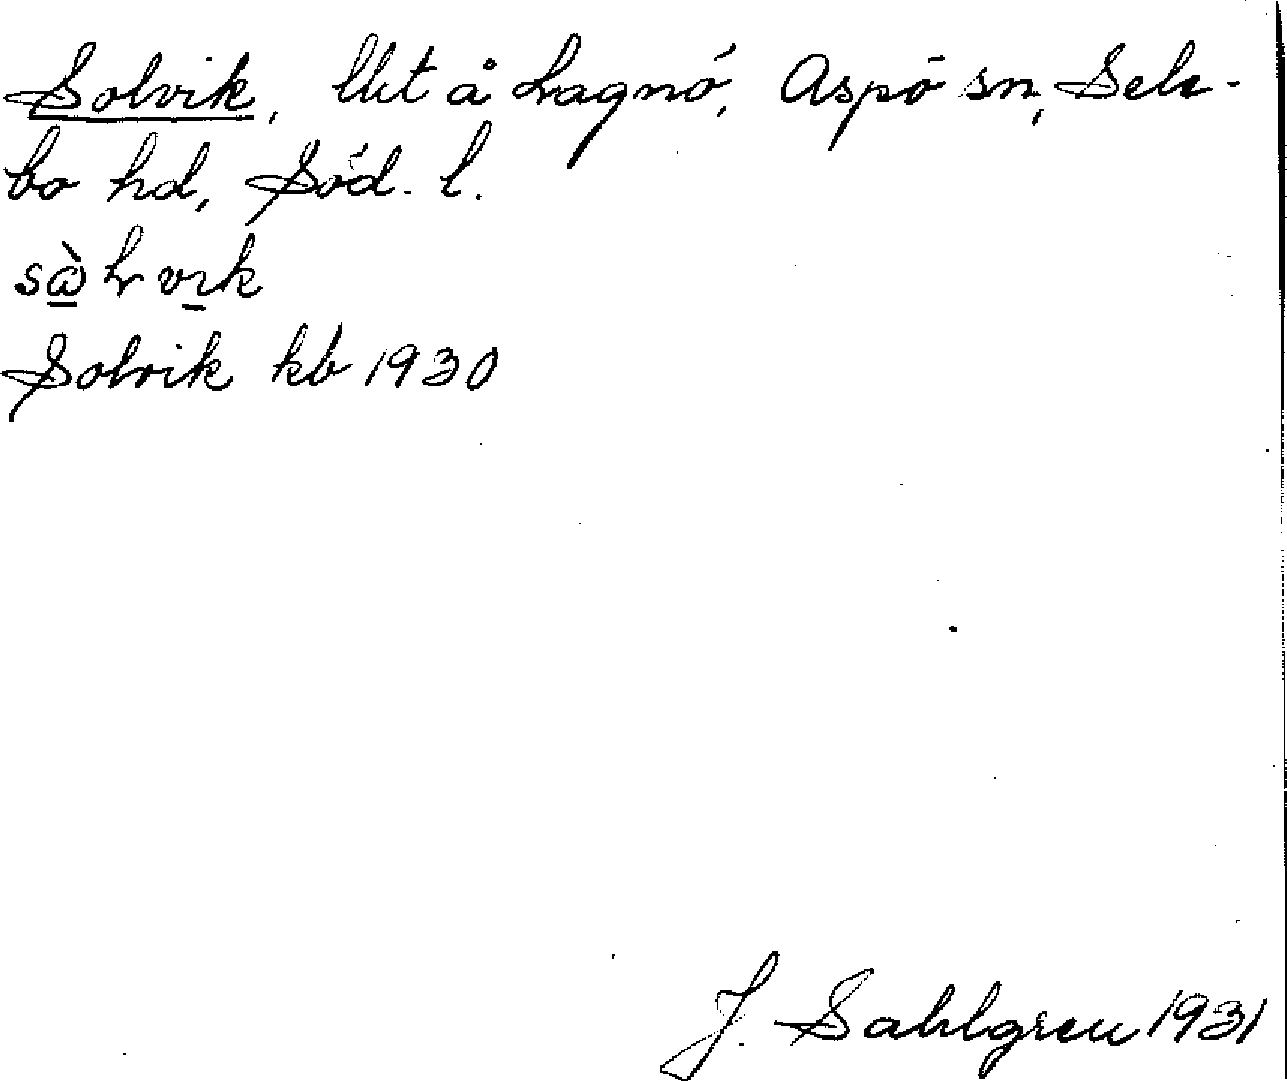 Solvik, lht å Lagnö, Aspö sn, Sele-
bo hd, Söd. l.
Solvik kb 1930
J. Sahlgren 1931